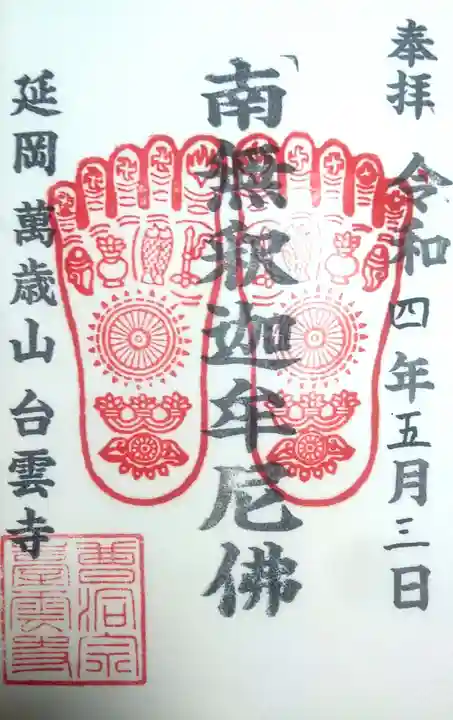 奉拝 令和四年五月三日
南無釈迦牟尼佛
延岡 萬歳山 台雲寺
曹洞宗
臺雲寺